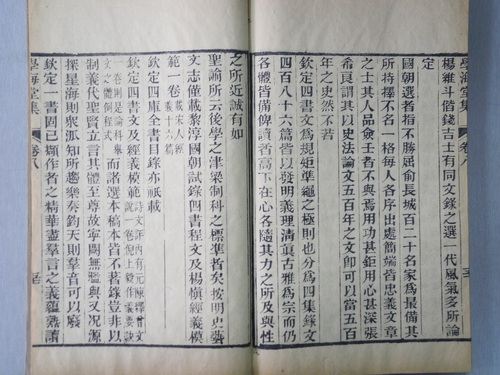 學海堂集 卷八
楊維斗偕錢吉士有同文錄之選一代風氣多所論
定
國朝選者指不勝屈俞長城百二十名家爲最備其
所持擇不名一格每人各序出處簡端皆忠義文章
之士其人品僉壬者不與焉用功甚鉅用心甚深張
希良謂其以史法論文五百年之文卽可當五百
年之史然不若
欽定四書文爲規矩準繩之極則也分爲四集錄文
四百八十六篇皆以發明義理淸眞古雅爲宗而仍
各體皆備俾讀者高下在心各隨其力之所及與性
之所近誠有如
聖諭所云後學之津梁制科之標準者矣按明史藝
文志僅載黎淳國朝試錄四書程文及楊愼經義模
範一卷載宋人經義十六篇
欽定四庫全書目錄亦祇載
欽定四書文及經義模範詩文評內有元陳繹曾文說一卷倪士毅作義要訣
一卷則是論科擧文之體例程式而諸選本稿本皆不錄豈非以
制義代聖賢立言其體至尊故寧闕無濫與又况源
探星海則衆派知所趨樂奏鈞天則羣音可以廢
欽定一書固已擷作者之精華盡羣言之義蘊熟讀
學海堂集 卷八